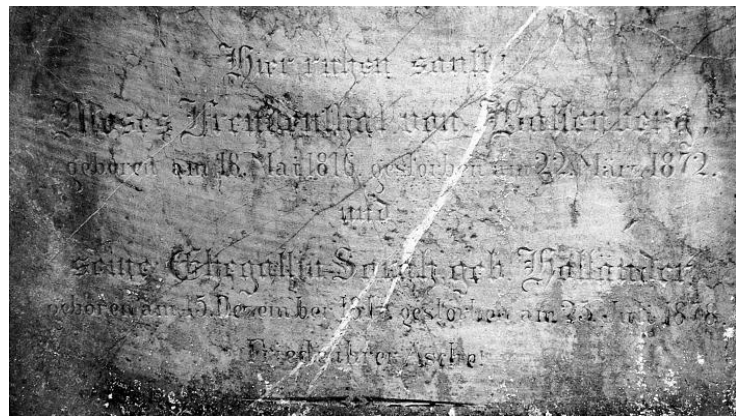 Hier ruhen sanft:
Moses Freudenthal von Wallenberg,
geboren am 18. Mai 1816 gestorben am 22. März 1872.
und
seine Ehegattin Sarah geb. Holländer
geboren am 15. Dezember gestorben am 25.
Friede ihrer Asche!